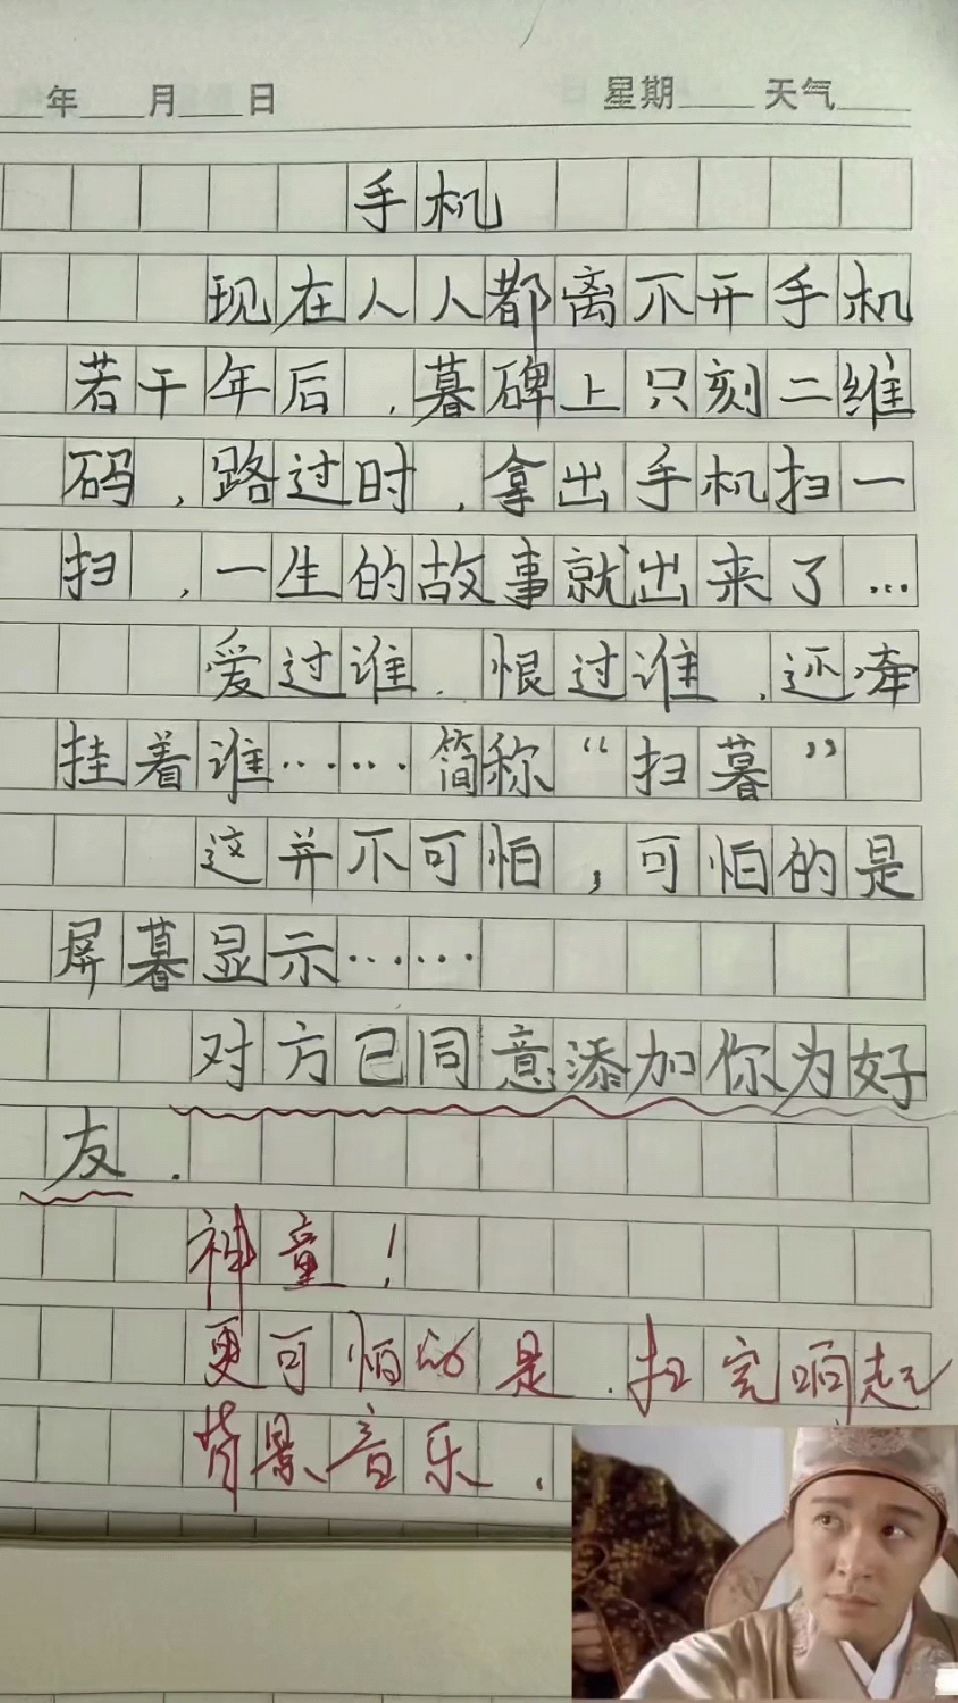 年 月 日 星期 天气
手机
现在人人都离不开手机
若干年后,暮碑上只刻二维
码,路过时,拿出手机扫一
扫,一生的故事就出来了…
爱过谁.恨过谁,还牵
挂着谁……简称“扫暮”
这并不可怕,可怕的是
屏暮显示……
对方已同意添加你为好
友.
神童!
更可怕的是.扫完响起
背景音乐.